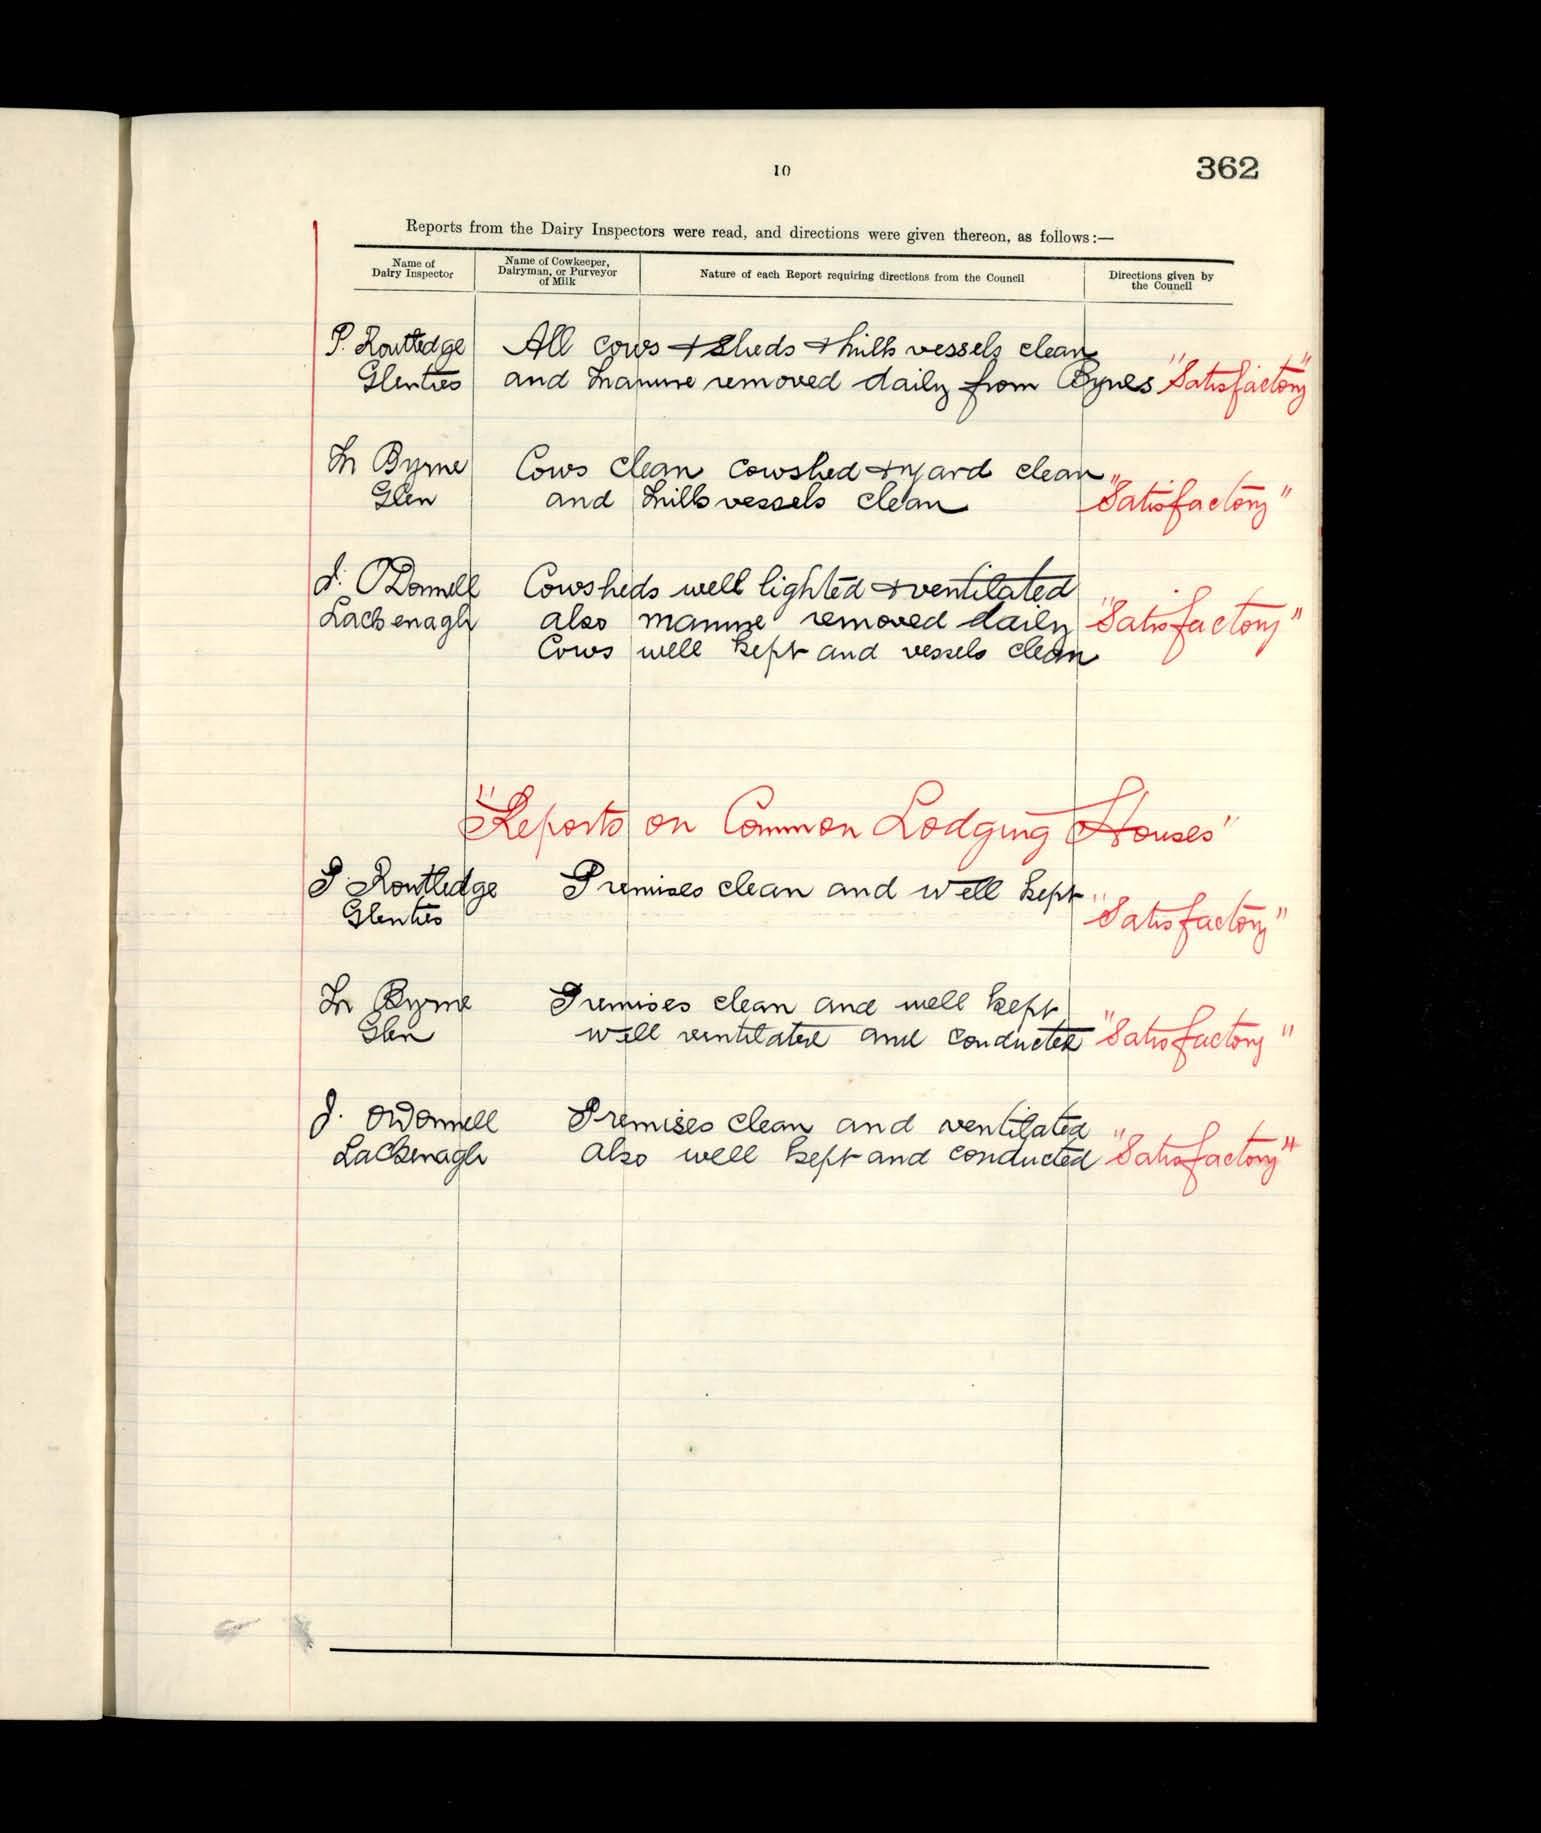 10
362
Reports from the Dairy Inspectors were read, and directions were given thereon, as follows:—
Name of
Dairy Inspector
Name of Cowkeeper,
Dairyman, or Purveyor
of Milk
Nature of each Report requiring directions from the Council
Directions given by
the Council
P. Routledge All cows + sheds + milk vessels clean
Glenties and manure removed daily from Byres "Satisfactory"
M Byrne Cows clean cowshed + yard clean
Glen and milk vessels clean "Satisfactory"
J. O'Donnell Cowsheds well lighted + ventilated
Lackenagh also manure removed daily "Satisfactory"
Cows well kept and vessels clean
"Reports on Common Lodging Houses"
P Routledge Premises clean and well kept
Glenties "Satisfactory"
M Byrne Premises clean and well kept
Glen well ventilated and conducted "Satisfactory"
J. O'Donnell Premises clean and ventilated
Lackenagh also well kept and conducted "Satisfactory"